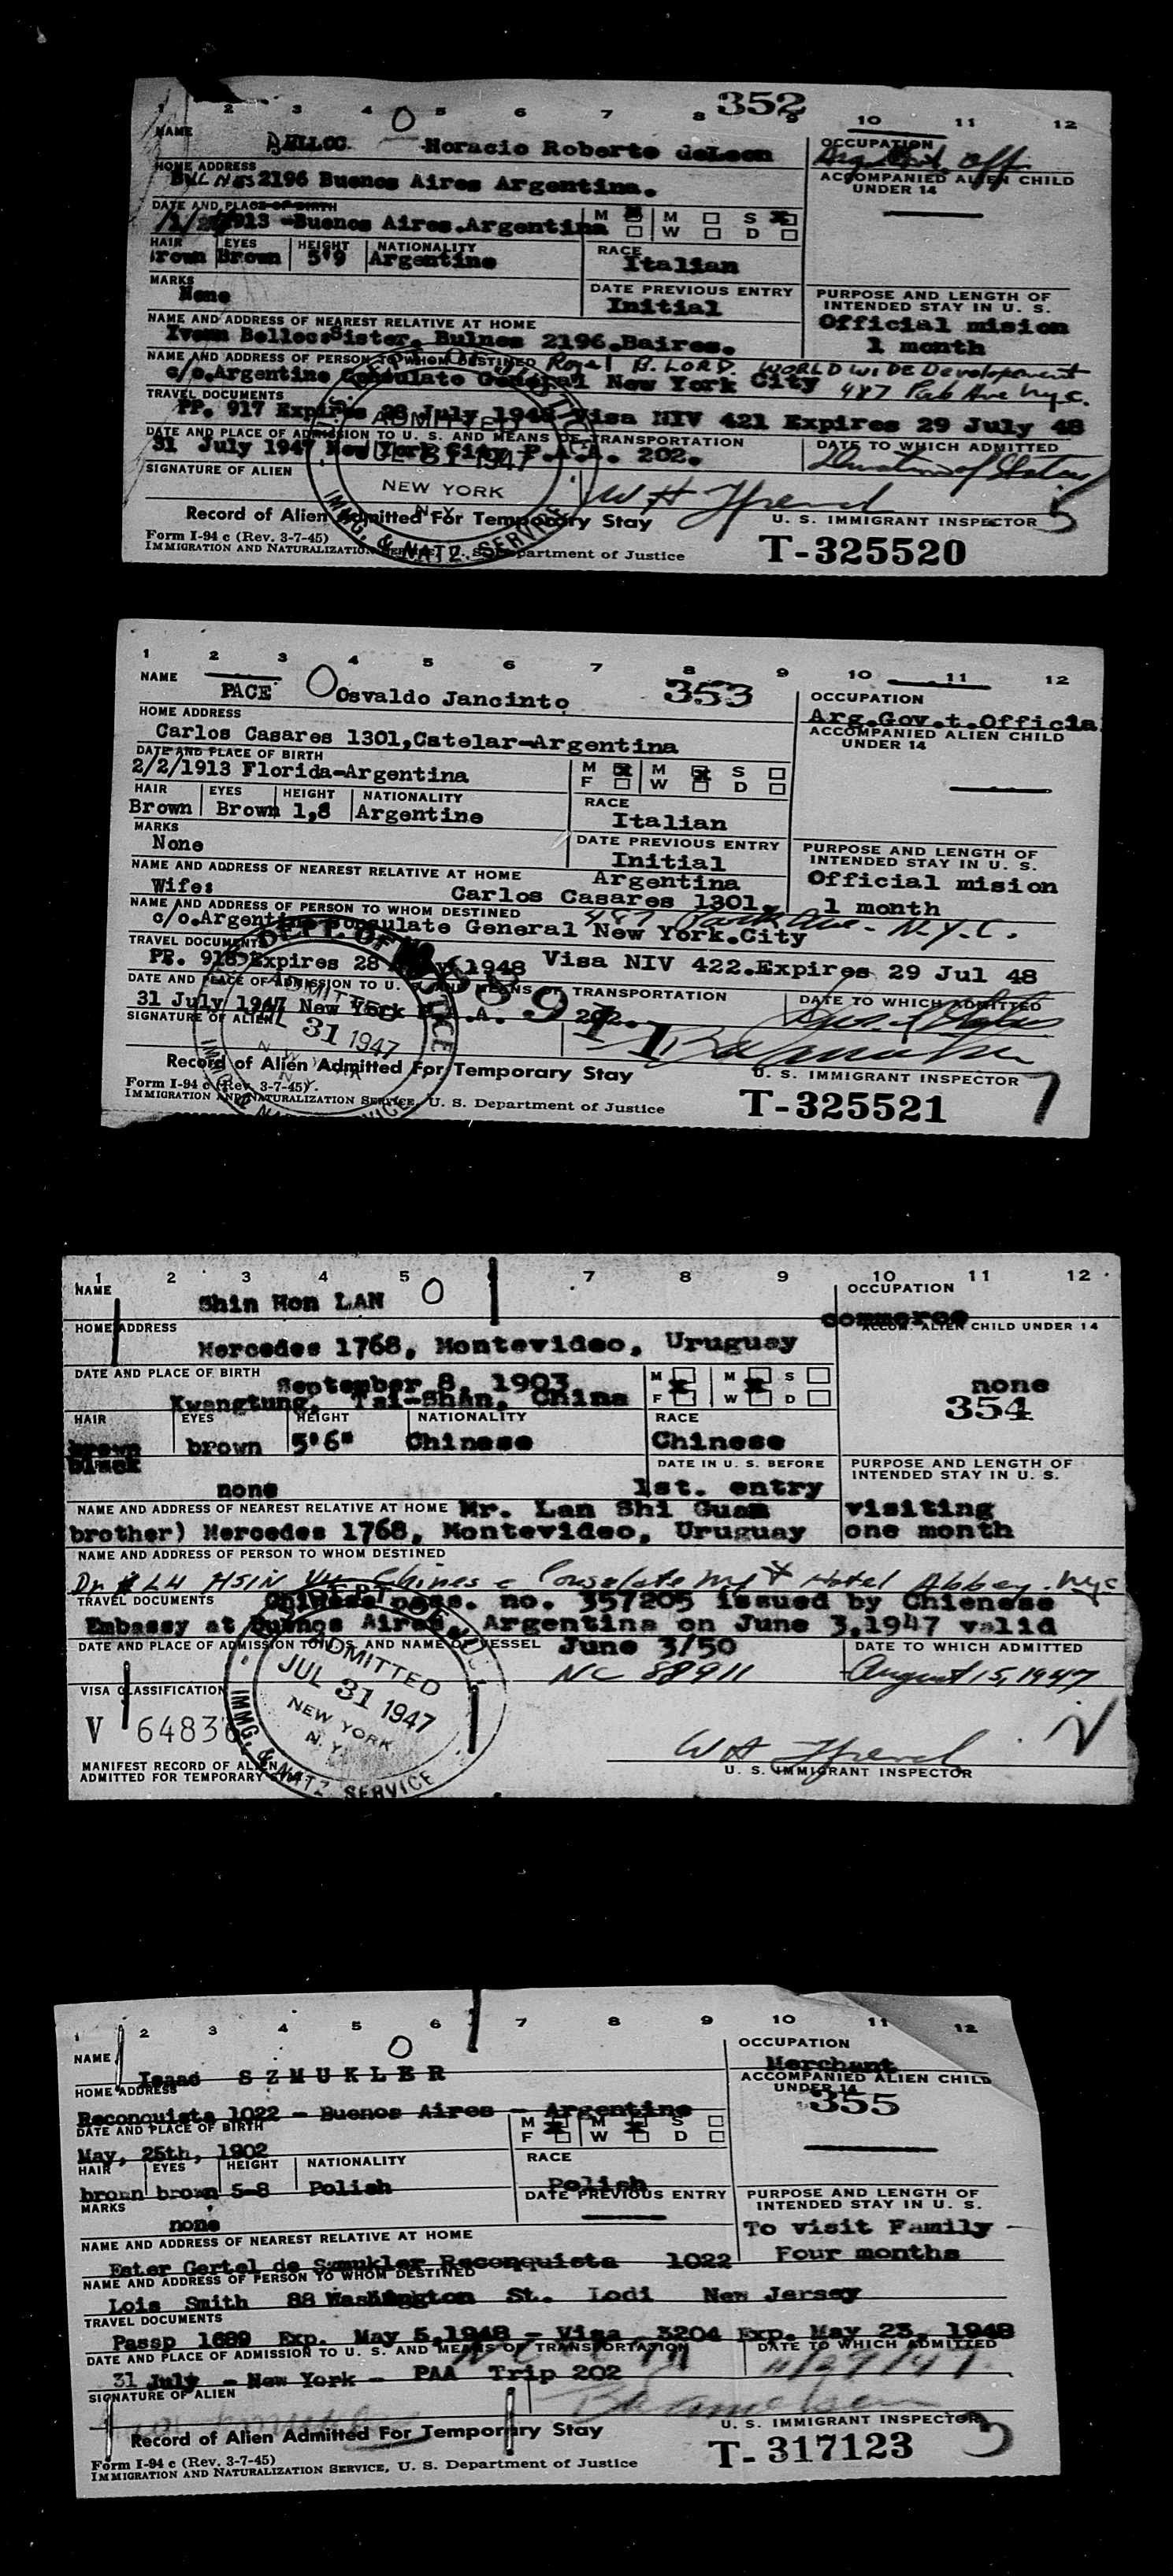 1 2 3 4 5 6 7 8 9 10 11 12
352
NAME
BELLOC Horacio Roberto deLeon
OCCUPATION
HOME ADDRESS
ACCOMPANIED ALIEN CHILD
UNDER 14
2196 Buenos Aires Argentina.
DATE AND PLACE OF BIRTH
1913 -Buenos Aires.Argentina
M M S
W D
HAIR EYES HEIGHT NATIONALITY RACE
Brown Brown 5'9 Argentine Italian
MARKS
None
DATE PREVIOUS ENTRY
Initial
PURPOSE AND LENGTH OF
INTENDED STAY IN U. S.
Official mision
1 month
NAME AND ADDRESS OF NEAREST RELATIVE AT HOME
Sister. Bulnes 2196.Baires.
NAME AND ADDRESS OF PERSON TO WHOM DESTINED Royal B. LORD. WORLD WIDE Development
c/o.Argentine Consulate General New York City 487 Park Ave N.y.c.
TRAVEL DOCUMENTS
PP. 917 Expires 28 July 1948 Visa NIV 421 Expires 29 July 48
DATE AND PLACE OF ADMISSION TO U. S. AND MEANS OF TRANSPORTATION
DATE TO WHICH ADMITTED
31 July 1947 New York City P.A.A. 202.
Duration of Status
SIGNATURE OF ALIEN
ADMITTED
JUL 31 1947
NEW YORK
N. Y.
IMMG. & NATZ. SERVICE
Record of Alien Admitted For Temporary Stay
U. S. IMMIGRANT INSPECTOR
5
Form I-94 c (Rev. 3-7-45)
IMMIGRATION AND NATURALIZATION SERVICE, U. S. Department of Justice
T-325520
1 2 3 4 5 6 7 8 9 10 11 12
NAME
PACE Osvaldo Jancinto
353
OCCUPATION
Arg.Gov.t.Officia
HOME ADDRESS
ACCOMPANIED ALIEN CHILD
UNDER 14
Carlos Casares 1301,Catelar-Argentina
DATE AND PLACE OF BIRTH
2/2/1913 Florida-Argentina
M M S
F W D
HAIR EYES HEIGHT NATIONALITY RACE
Brown Brown 1,8 Argentine Italian
MARKS
None
DATE PREVIOUS ENTRY
Initial
PURPOSE AND LENGTH OF
INTENDED STAY IN U. S.
Official mision
1 month
NAME AND ADDRESS OF NEAREST RELATIVE AT HOME
Argentina
Wife: Carlos Casares 1301,
NAME AND ADDRESS OF PERSON TO WHOM DESTINED
487 Park Ave. N.Y.C.
c/o.Argentine Consulate General New York.City
TRAVEL DOCUMENTS
PP. 918 Expires 28 July 1948 Visa NIV 422.Expires 29 Jul 48
DATE AND PLACE OF ADMISSION TO U. S. AND MEANS OF TRANSPORTATION
DATE TO WHICH ADMITTED
31 July 1947 New York P.A.A. 202.
88911
SIGNATURE OF ALIEN
DEPT. OF JUSTICE
ADMITTED
JUL 31 1947
Record of Alien Admitted For Temporary Stay
U. S. IMMIGRANT INSPECTOR
7
Form I-94 c (Rev. 3-7-45).
IMMIGRATION AND NATURALIZATION SERVICE, U. S. Department of Justice
T-325521
1 2 3 4 5 7 8 9 10 11 12
NAME
Shin Hon LAN
OCCUPATION
commerce
HOME ADDRESS
ACCOM. ALIEN CHILD UNDER 14
Mercedes 1768, Montevideo, Uruguay
DATE AND PLACE OF BIRTH
September 8, 1903
Kwangtung, Tai-Shan, China
M M S
F W D
none
354
HAIR EYES HEIGHT NATIONALITY RACE
brown brown 5'6" Chinese Chinese
black
DATE IN U. S. BEFORE
PURPOSE AND LENGTH OF
INTENDED STAY IN U. S.
none 1st. entry
NAME AND ADDRESS OF NEAREST RELATIVE AT HOME Mr. Lan Shi Guan
visiting
brother) Mercedes 1768, Montevideo, Uruguay
one month
NAME AND ADDRESS OF PERSON TO WHOM DESTINED
Chinese Consulate NY Hotel Abbey. Nyc
TRAVEL DOCUMENTS
Chinese pass. no. 357205 issued by Chienese
Embassy at Buenos Aires, Argentina on June 3,1947 valid
DATE AND PLACE OF ADMISSION TO U. S. AND NAME OF VESSEL
June 3/50
DATE TO WHICH ADMITTED
NC 88911
August 15, 1947
VISA CLASSIFICATION
V 6483
ADMITTED
JUL 31 1947
NEW YORK
N. Y.
IMMG. & NATZ. SERVICE
MANIFEST RECORD OF ALIEN
ADMITTED FOR TEMPORARY
U. S. IMMIGRANT INSPECTOR
1 2 3 4 5 6 7 8 9 10 11 12
NAME
Isaac SZMUKLER
OCCUPATION
Merchant
HOME ADDRESS
ACCOMPANIED ALIEN CHILD
UNDER 14
355
Reconquista 1022 - Buenos Aires - Argentine
DATE AND PLACE OF BIRTH
M M S
F W D
May, 25th, 1902
HAIR EYES HEIGHT NATIONALITY RACE
brown brown 5-8 Polish Polish
MARKS
none
DATE PREVIOUS ENTRY
PURPOSE AND LENGTH OF
INTENDED STAY IN U. S.
To visit Family
Four months
NAME AND ADDRESS OF NEAREST RELATIVE AT HOME
Ester Gertel de Szmukler Reconquista 1022
NAME AND ADDRESS OF PERSON TO WHOM DESTINED
Lois Smith 88 Washington St. Lodi New Jersey
TRAVEL DOCUMENTS
Passp 1689 Exp. May 5,1948 - Visa 3204 Exp. May 23, 1948
DATE AND PLACE OF ADMISSION TO U. S. AND MEANS OF TRANSPORTATION
DATE TO WHICH ADMITTED
31 July - New York - PAA Trip 202
11/29/47
SIGNATURE OF ALIEN
Record of Alien Admitted For Temporary Stay
U. S. IMMIGRANT INSPECTOR
Form I-94 c (Rev. 3-7-45)
IMMIGRATION AND NATURALIZATION SERVICE, U. S. Department of Justice
T-317123